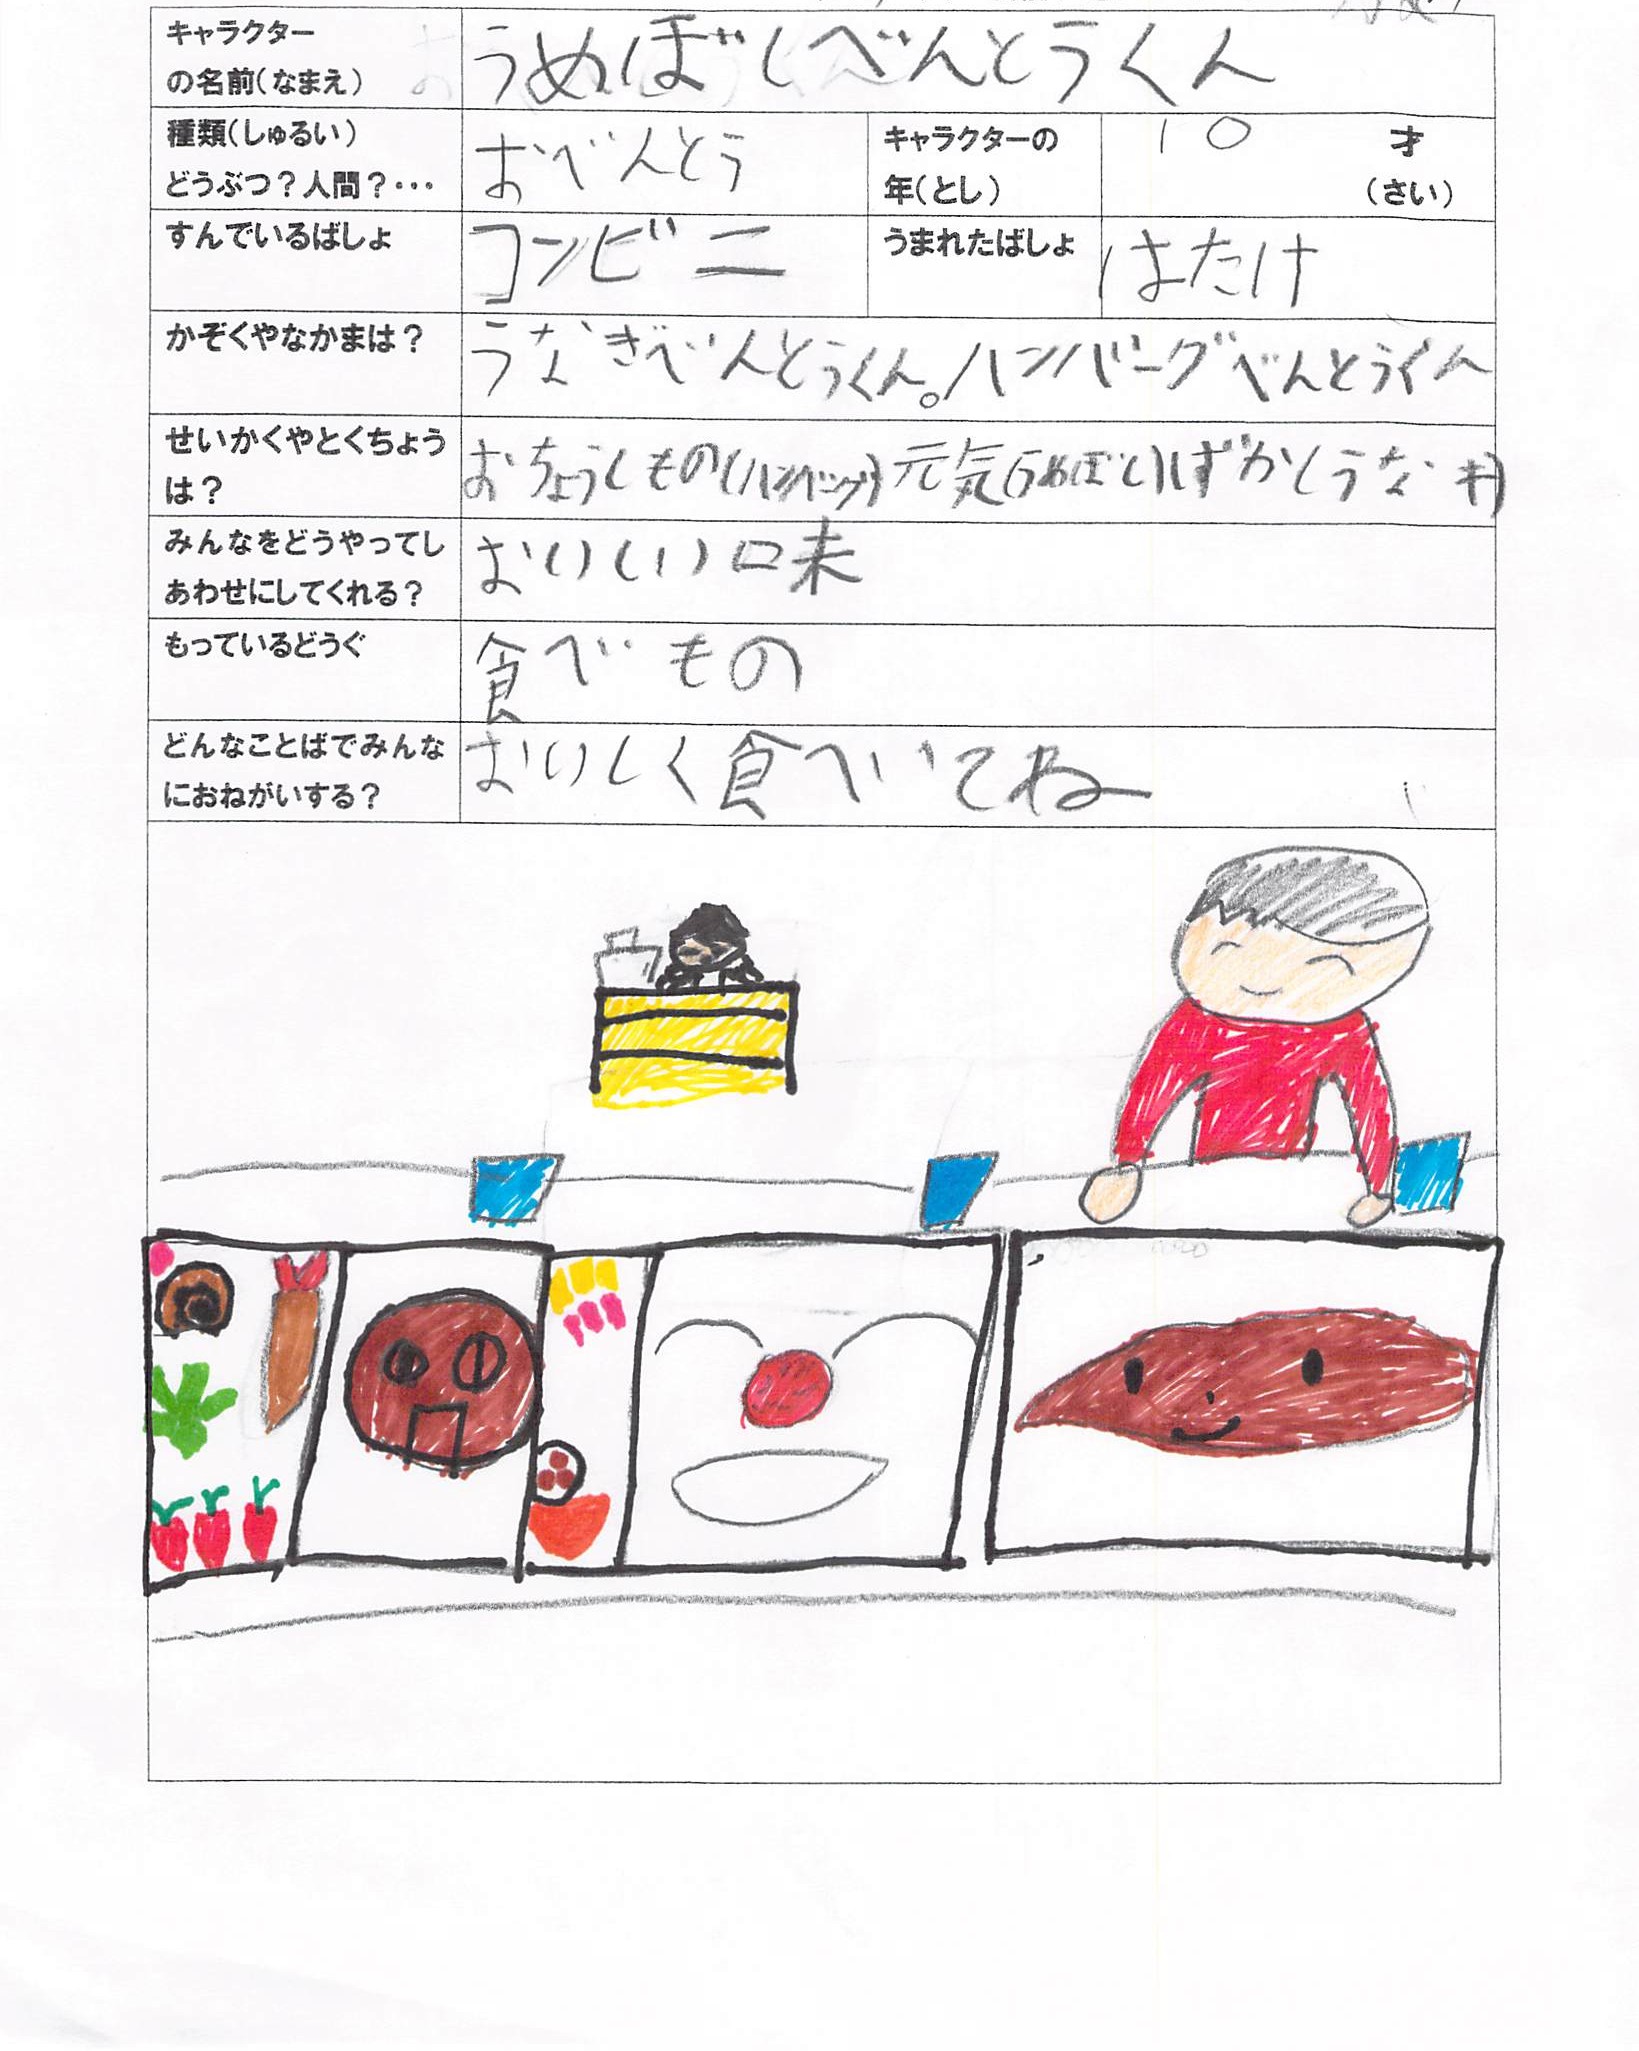 キャラクター
の名前(なまえ)
うめぼしべんとうくん
種類(しゅるい)
どうぶつ?人間?・・・
おべんとう
キャラクターの
年(とし)
10 才
(さい)
すんでいるばしょ
コンビニ
うまれたばしょ
はたけ
かぞくやなかまは?
うなぎべんとうくん。ハンバーグべんとうくん
せいかくやとくちょう
は?
おちょうしもの(ハンバーグ)元気(うめぼし)はずかし(うなギ)
みんなをどうやってし
あわせにしてくれる?
おいしい味
もっているどうぐ
食べもの
どんなことばでみんな
におねがいする?
おいしく食べいてね